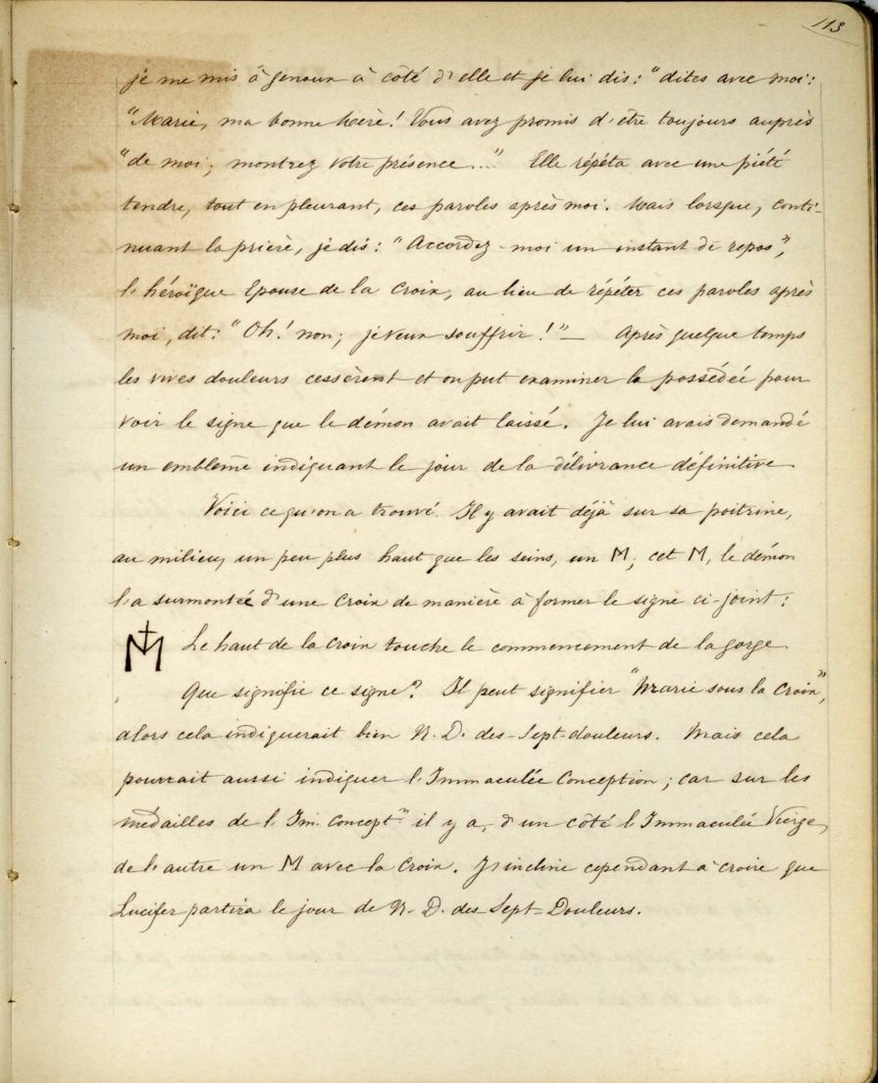 113
je me mis à genoux à côté d'elle et je lui dis : "dites avec moi :
"Marie, ma bonne Mère ! Vous avez promis d'être toujours auprès
"de moi ; montrez votre présence..." Elle répéta avec une piété
tendre, tout en pleurant, ces paroles après moi. Mais lorsque, conti-
nuant la prière, je dis : "Accordez-moi un instant de repos",
l'héroïque Epouse de la Croix, au lieu de répéter ces paroles après
moi, dit : "Oh ! non ; je veux souffrir !" — Après quelque temps
les vives douleurs cessèrent et on put examiner la possédée pour
voir le signe que le démon avait laissé. Je lui avais demandé
un emblème indiquant le jour de la délivrance définitive
Voici ce qu'on a trouvé. Il y avait déjà sur sa poitrine,
au milieu, un peu plus haut que les seins, un M ; cet M, le démon
l'a surmontée d'une Croix de manière à former le signe ci-joint :
M Le haut de la Croix touche le commencement de la gorge.
Que signifie ce signe ? Il peut signifier "Marie sous la Croix",
alors cela indiquerait bien N. D. des-Sept-douleurs. Mais cela
pourrait aussi indiquer l'Immaculée Conception ; car sur les
médailles de l'Im. Concept.on il y a, d'un côté l'Immaculée Vierge,
de l'autre un M avec la Croix. J'incline cependant à croire que
Lucifer partira le jour de N. D. des Sept-Douleurs.